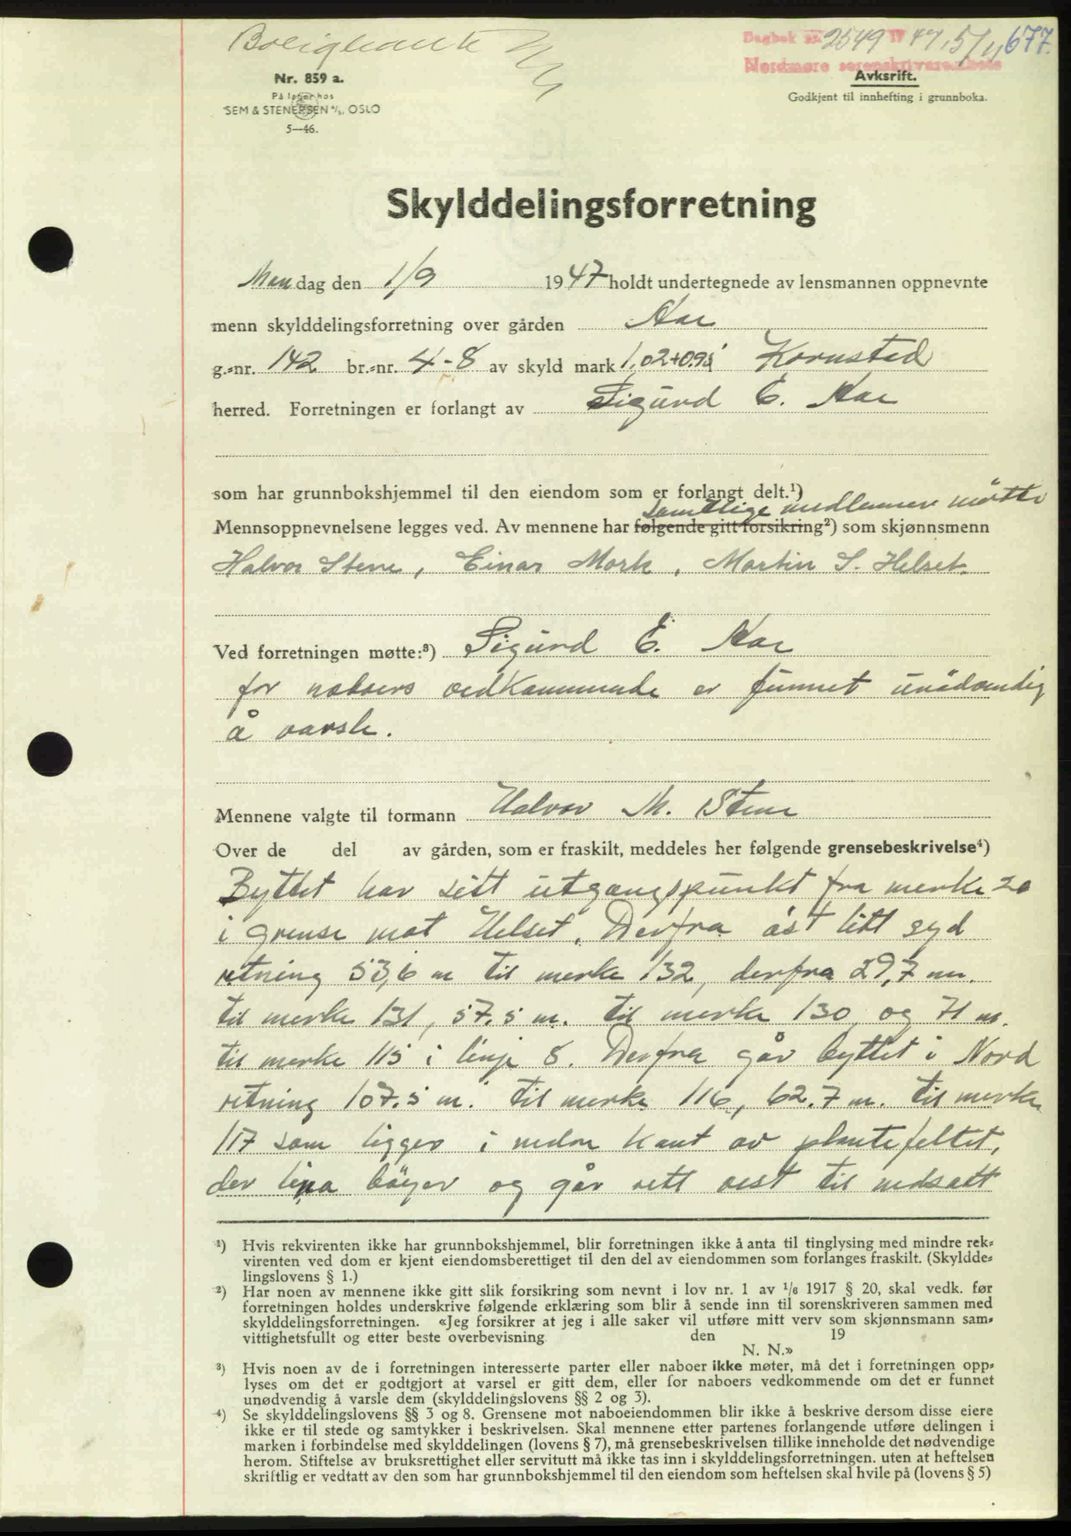 Boligbank
Dagbok nr. 2549 19 47, 5/11 677.
Nordmøre sorenskriverembete
Nr. 859 a.
På lager hos
SEM & STENERSEN A/S, OSLO
5—46.
Avkskrift.
Godkjent til innhefting i grunnboka.
Skylddelingsforretning
Mandag den 1/9 1947 holdt undertegnede av lensmannen oppnevnte
menn skylddelingsforretning over gården Aae
g.-nr. 142 br.-nr. 4-8 av skyld mark 1,02+0.95 Kornstad
herred. Forretningen er forlangt av Sigurd E. Aae
som har grunnbokshjemmel til den eiendom som er forlangt delt.¹)
samtlige medlemmer møtte
Mennsoppnevnelsene legges ved. Av mennene har følgende gitt forsikring²) som skjønnsmenn
Halvor Stene, Einar Mork, Martin S. Helset.
Ved forretningen møtte:³) Sigurd E. Aae
for naboers vedkommende er funnet unødvendig
å varsle.
Mennene valgte til formann Halvor M. Stene
Over de del av gården, som er fraskilt, meddeles her følgende grensebeskrivelse⁴)
Byttet har sitt utgangspunkt fra merke 20
i grense mot Helset. Derfra øst litt syd
retning 53,6 m til merke 132, derfra 29,7 m.
til merke 131, 57.5 m. til merke 130 og 71 m.
til merke 115 i linje 8. Derfra går byttet i Nord
retning 107.5 m. til merke 116, 62.7 m. til merke
117 som ligger i nedre kant av plantefeltet,
der lina bøyer og går rett vest til nedsatt
¹) Hvis rekvirenten ikke har grunnbokshjemmel, blir forretningen ikke å anta til tinglysing med mindre rek-
virenten ved dom er kjent eiendomsberettiget til den del av eiendommen som forlanges fraskilt. (Skyldde-
lingslovens § 1.)
²) Har noen av mennene ikke gitt slik forsikring som nevnt i lov nr. 1 av 1/6 1917 § 20, skal vedk. før
forretningen holdes underskrive følgende erklæring som blir å sende inn til sorenskriveren sammen med
skylddelingsforretningen. «Jeg forsikrer at jeg i alle saker vil utføre mitt verv som skjønnsmann sam-
vittighetsfullt og etter beste overbevisning den 19
N. N.»
³) Hvis noen av de i forretningen interesserte parter eller naboer ikke møter, må det i forretningen opp-
lyses om det er godtgjort at varsel er gitt dem, eller for naboers vedkommende om det er funnet
unødvendig å varsle dem (skylddelingslovens §§ 2 og 3).
⁴) Se skylddelingslovens §§ 3 og 8. Grensene mot naboeiendommen blir ikke å beskrive dersom disse eiere
ikke er til stede og samtykker i beskrivelsen. Skal mennene etter partenes forlangende utføre delingen i
marken i forbindelse med skylddelingen (lovens § 7), må grensebeskrivelsen tillike inneholde det nødvendige
herom. Stiftelse av bruksrettighet eller servitutt må ikke tas inn i skylddelingsforretningen. uten at heftelsen
skriftlig er vedtatt av den som har grunnbokshjemmel til den eiendom som heftelsen skal hvile på (lovens § 5)